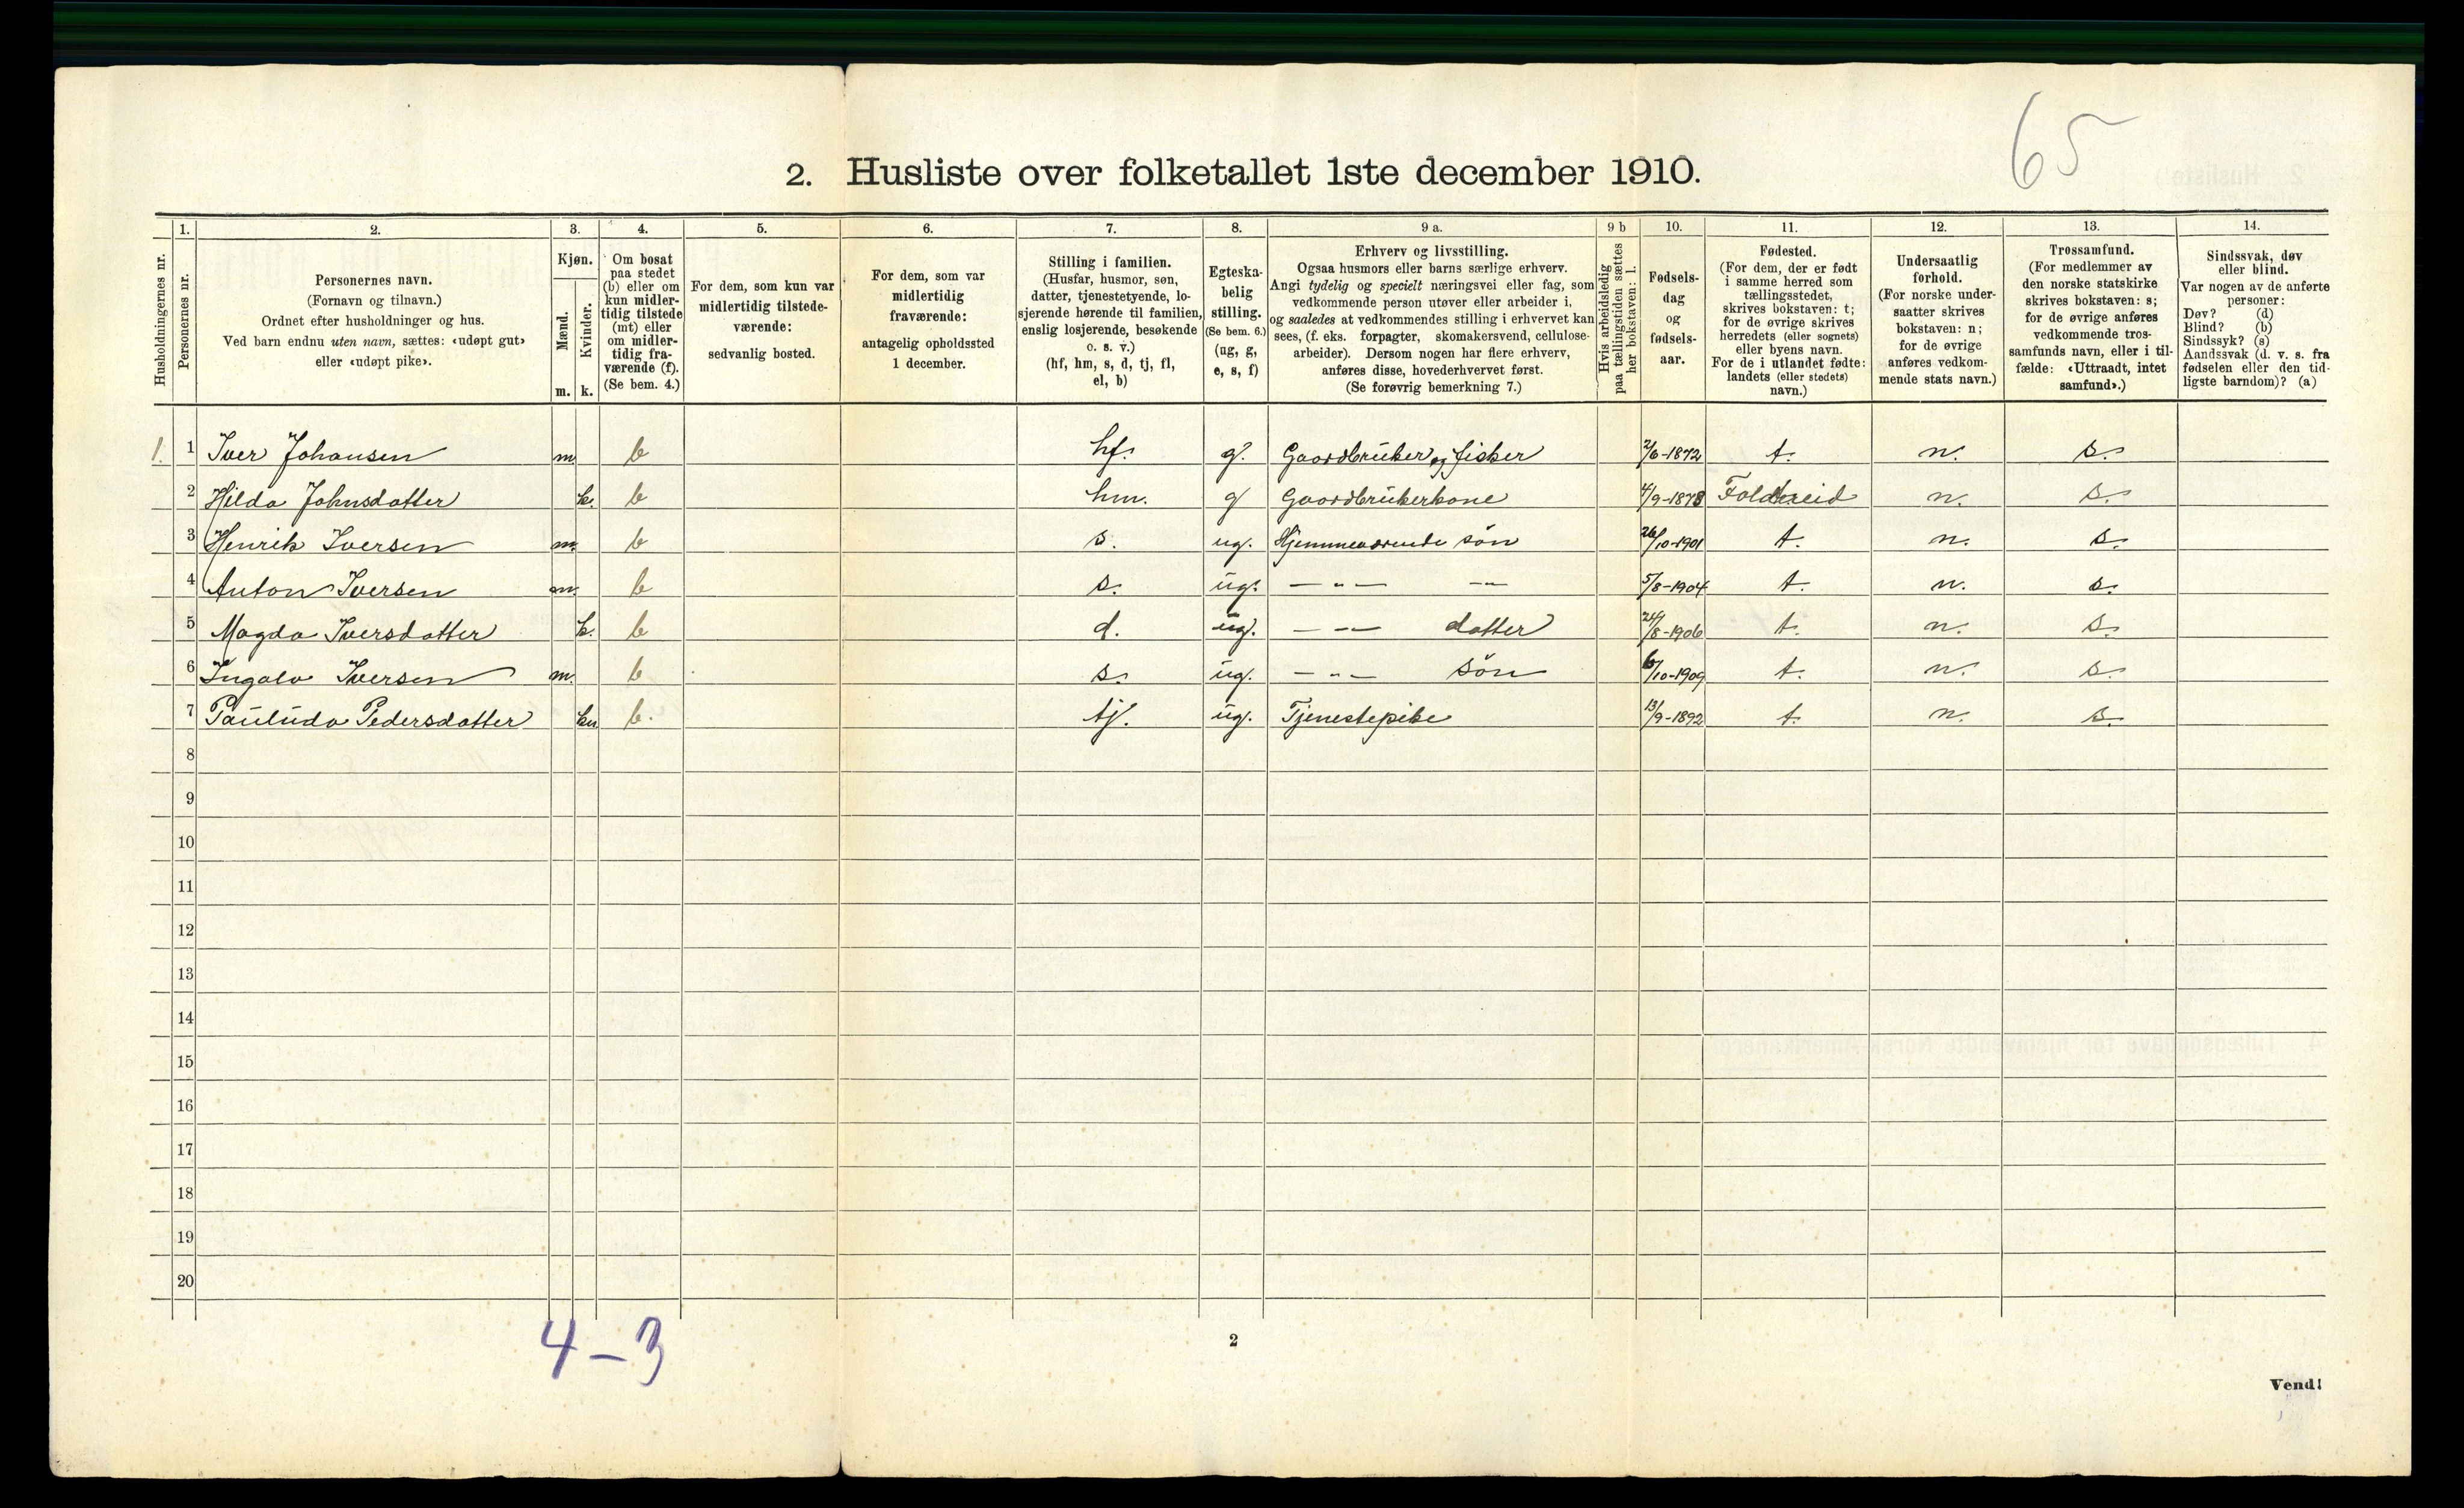 65
2. Husliste over folketallet 1ste december 1910.
Husholdningernes nr.
1.
Personernes nr.
2.
Personernes navn.
(Fornavn og tilnavn.)
Ordnet efter husholdninger og hus.
Ved barn endnu uten navn, sættes: «udøpt gut»
eller «udøpt pike».
3.
Kjøn.
Mænd.
m.
Kvinder.
k.
4.
Om bosat
paa stedet
(b) eller om
kun midler-
tidig tilstede
(mt) eller
om midler-
tidig fra-
værende (f).
(Se bem. 4.)
5.
For dem, som kun var
midlertidig tilstede-
værende:
sedvanlig bosted.
6.
For dem, som var
midlertidig
fraværende:
antagelig opholdssted
1 december.
7.
Stilling i familien.
(Husfar, husmor, søn,
datter, tjenestetyende, lo-
sjerende hørende til familien,
enslig losjerende, besøkende
o. s. v.)
(hf, hm, s, d, tj, fl,
el, b)
8.
Egteska-
belig
stilling.
(Se bem. 6.)
(ug, g,
e, s, f)
9 a.
Erhverv og livsstilling.
Ogsaa husmors eller barns særlige erhverv.
Angi tydelig og specielt næringsvei eller fag, som
vedkommende person utøver eller arbeider i,
og saaledes at vedkommendes stilling i erhvervet kan
sees, (f. eks. forpagter, skomakersvend, cellulose-
arbeider). Dersom nogen har flere erhverv,
anføres disse, hovederhvervet først.
(Se forøvrig bemerkning 7.)
9 b
Hvis arbeidsledig
paa tællingstiden sættes
her bokstaven: l.
10.
Fødsels-
dag
og
fødsels-
aar.
11.
Fødested.
(For dem, der er født
i samme herred som
tællingsstedet,
skrives bokstaven: t;
for de øvrige skrives
herredets (eller sognets)
eller byens navn.
For de i utlandet fødte:
landets (eller stedets)
navn.)
12.
Undersaatlig
forhold.
(For norske under-
saatter skrives
bokstaven: n;
for de øvrige
anføres vedkom-
mende stats navn.)
13.
Trossamfund.
(For medlemmer av
den norske statskirke
skrives bokstaven: s;
for de øvrige anføres
vedkommende tros-
samfunds navn, eller i til-
fælde: «Uttraadt, intet
samfund».)
14.
Sindssvak, døv
eller blind.
Var nogen av de anførte
personer:
Døv? (d)
Blind? (b)
Sindssyk? (s)
Aandssvak (d. v. s. fra
fødselen eller den tid-
ligste barndom)? (a)
1. 1 Iver Johansen m. b hf. g. Gaardbruker og fisker 2/6-1872 t. n. s.
2 Hilda Johnsdatter k. b hm. g Gaardbrukerkone 4/9-1878 Foldereid n. s.
3 Henrik Iversen m. b s. ug. Hjemmeværende søn 26/10-1901 t. n. s.
4 Anton Iversen m. b s. ug. — „ — — „ — 5/8-1904 t. n. s.
5 Magda Iversdatter k. b d. ug. — „ — datter 24/8-1906 t. n. s.
6 Ingolv Iversen m. b s. ug. — „ — søn 6/10-1909 t. n. s.
7 Pauluda Pedersdatter kn. b. tj. ug. Tjenestepike 13/9-1892 t. n. s.
8
9
10
11
12
13
14
15
16
17
18
19
20
4 – 3
2
Vend!